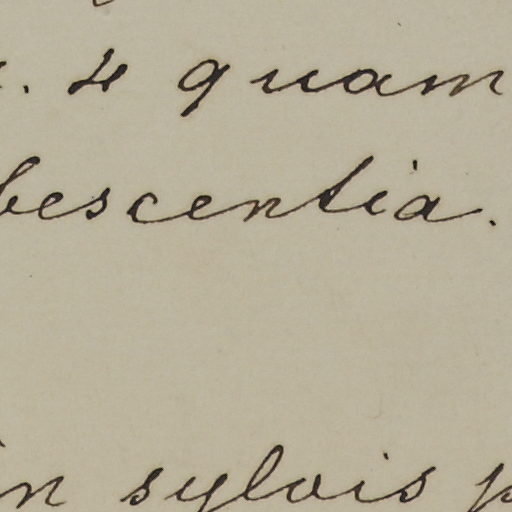 . 4 quam
bescentia.
in sylvis p